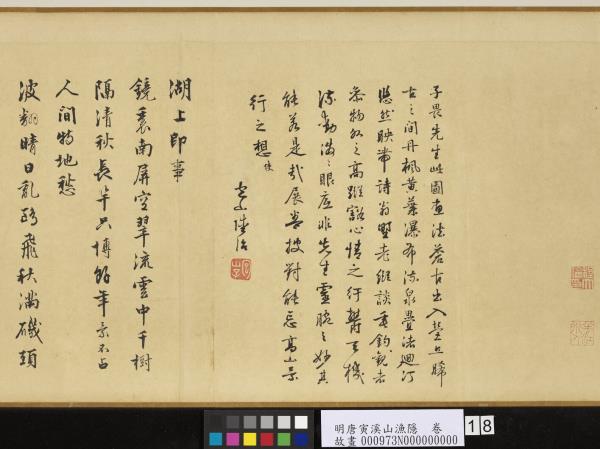 子畏先生此圖畫法蒼古出入營丘晞
古之間丹楓黃葉瀑布流泉疊法廻汀
悠然映帶詩翁野老縱談垂釣觀者
物外之高蹤豁心情之紆鬱天機
流動滿之眼底非先生靈腕之妙其
能若是哉展卷披對能忘高山景
行之想
包山陸治
湖上即事
鏡裏南屏空翠流雲中千樹
隔清秋長年只博餘年景不占
人間特地愁
波翻晴日亂鷗飛秋滿磯頭
明唐寅溪山漁隱 卷
故畫 000973N000000000
18